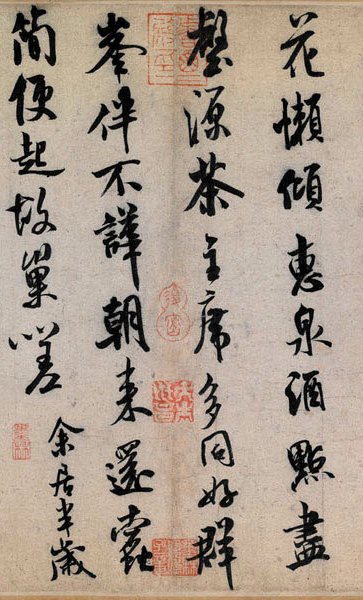 花懶傾惠泉酒點盡
壑源茶主席多同好群
峯伴不譁朝来還蠹
簡便起故巢嗟
余居半歲